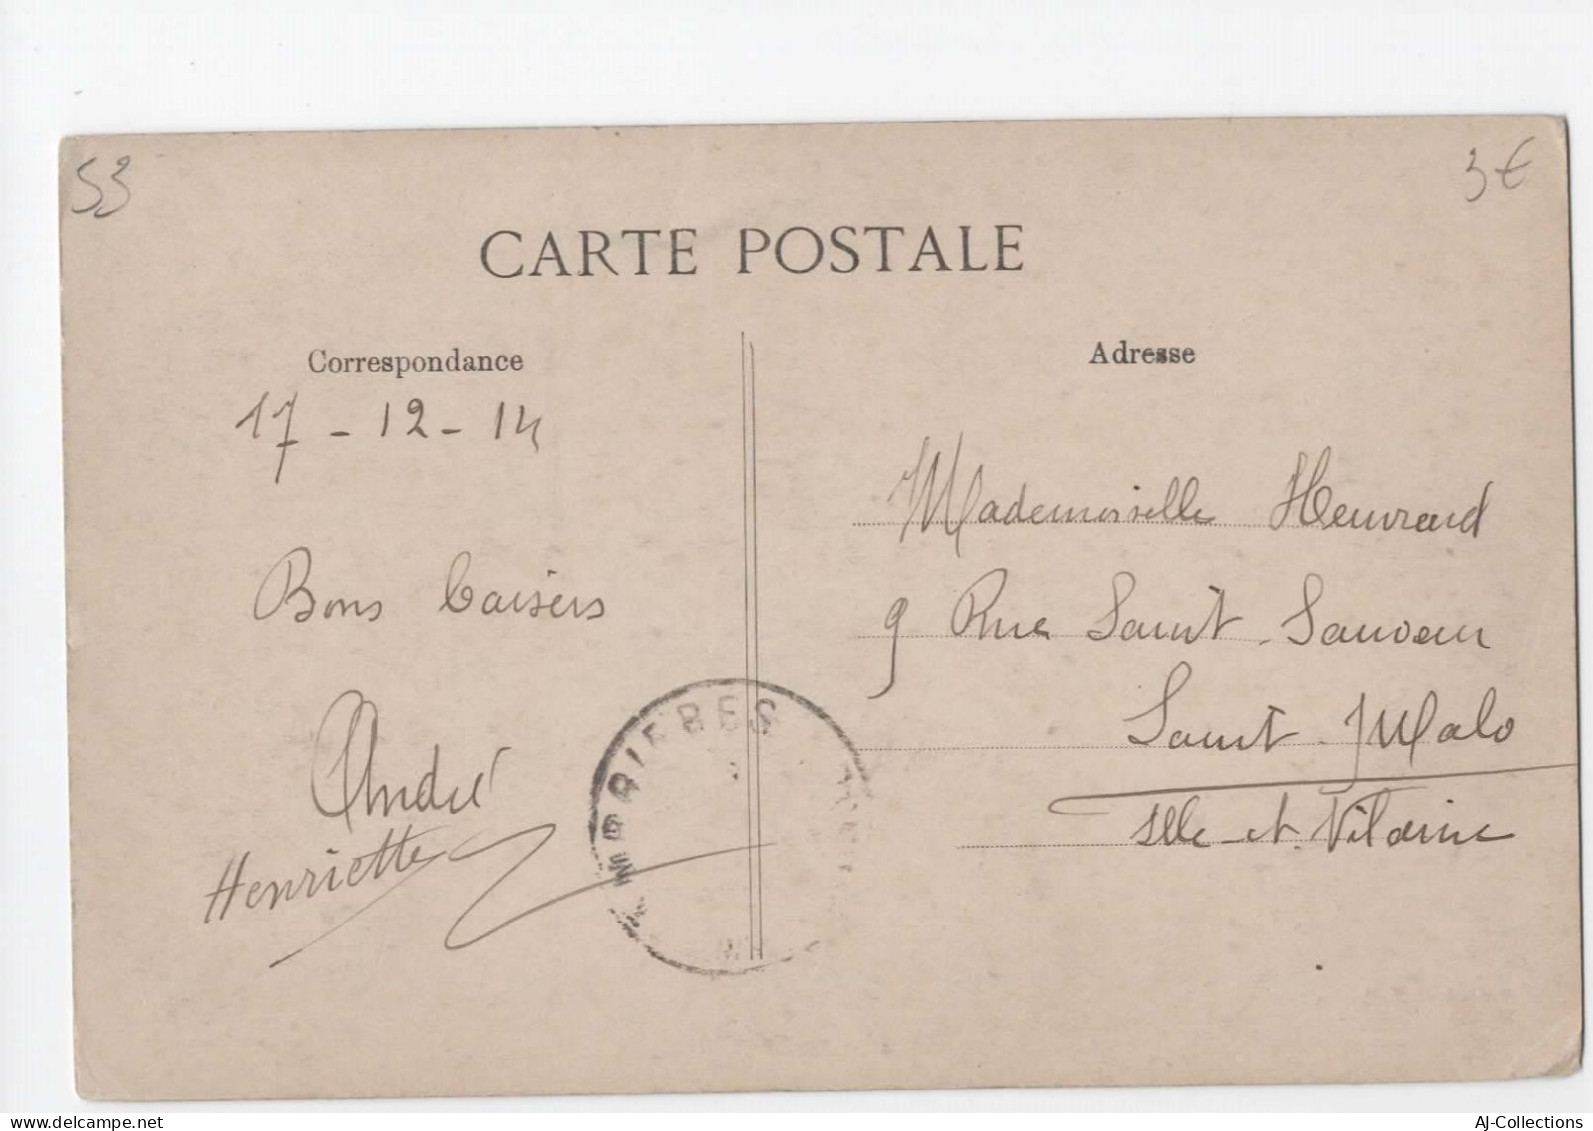 53
3€
CARTE POSTALE
Correspondance
17 - 12 - 14
Bons baisers
André
Henriette
Adresse
Mademoiselle Heuvrard
9 Rue Saint-Sauveur
Saint-Malo
Ille-et-Vilaine
BRIERES
delcampe.net
AJ-Collections